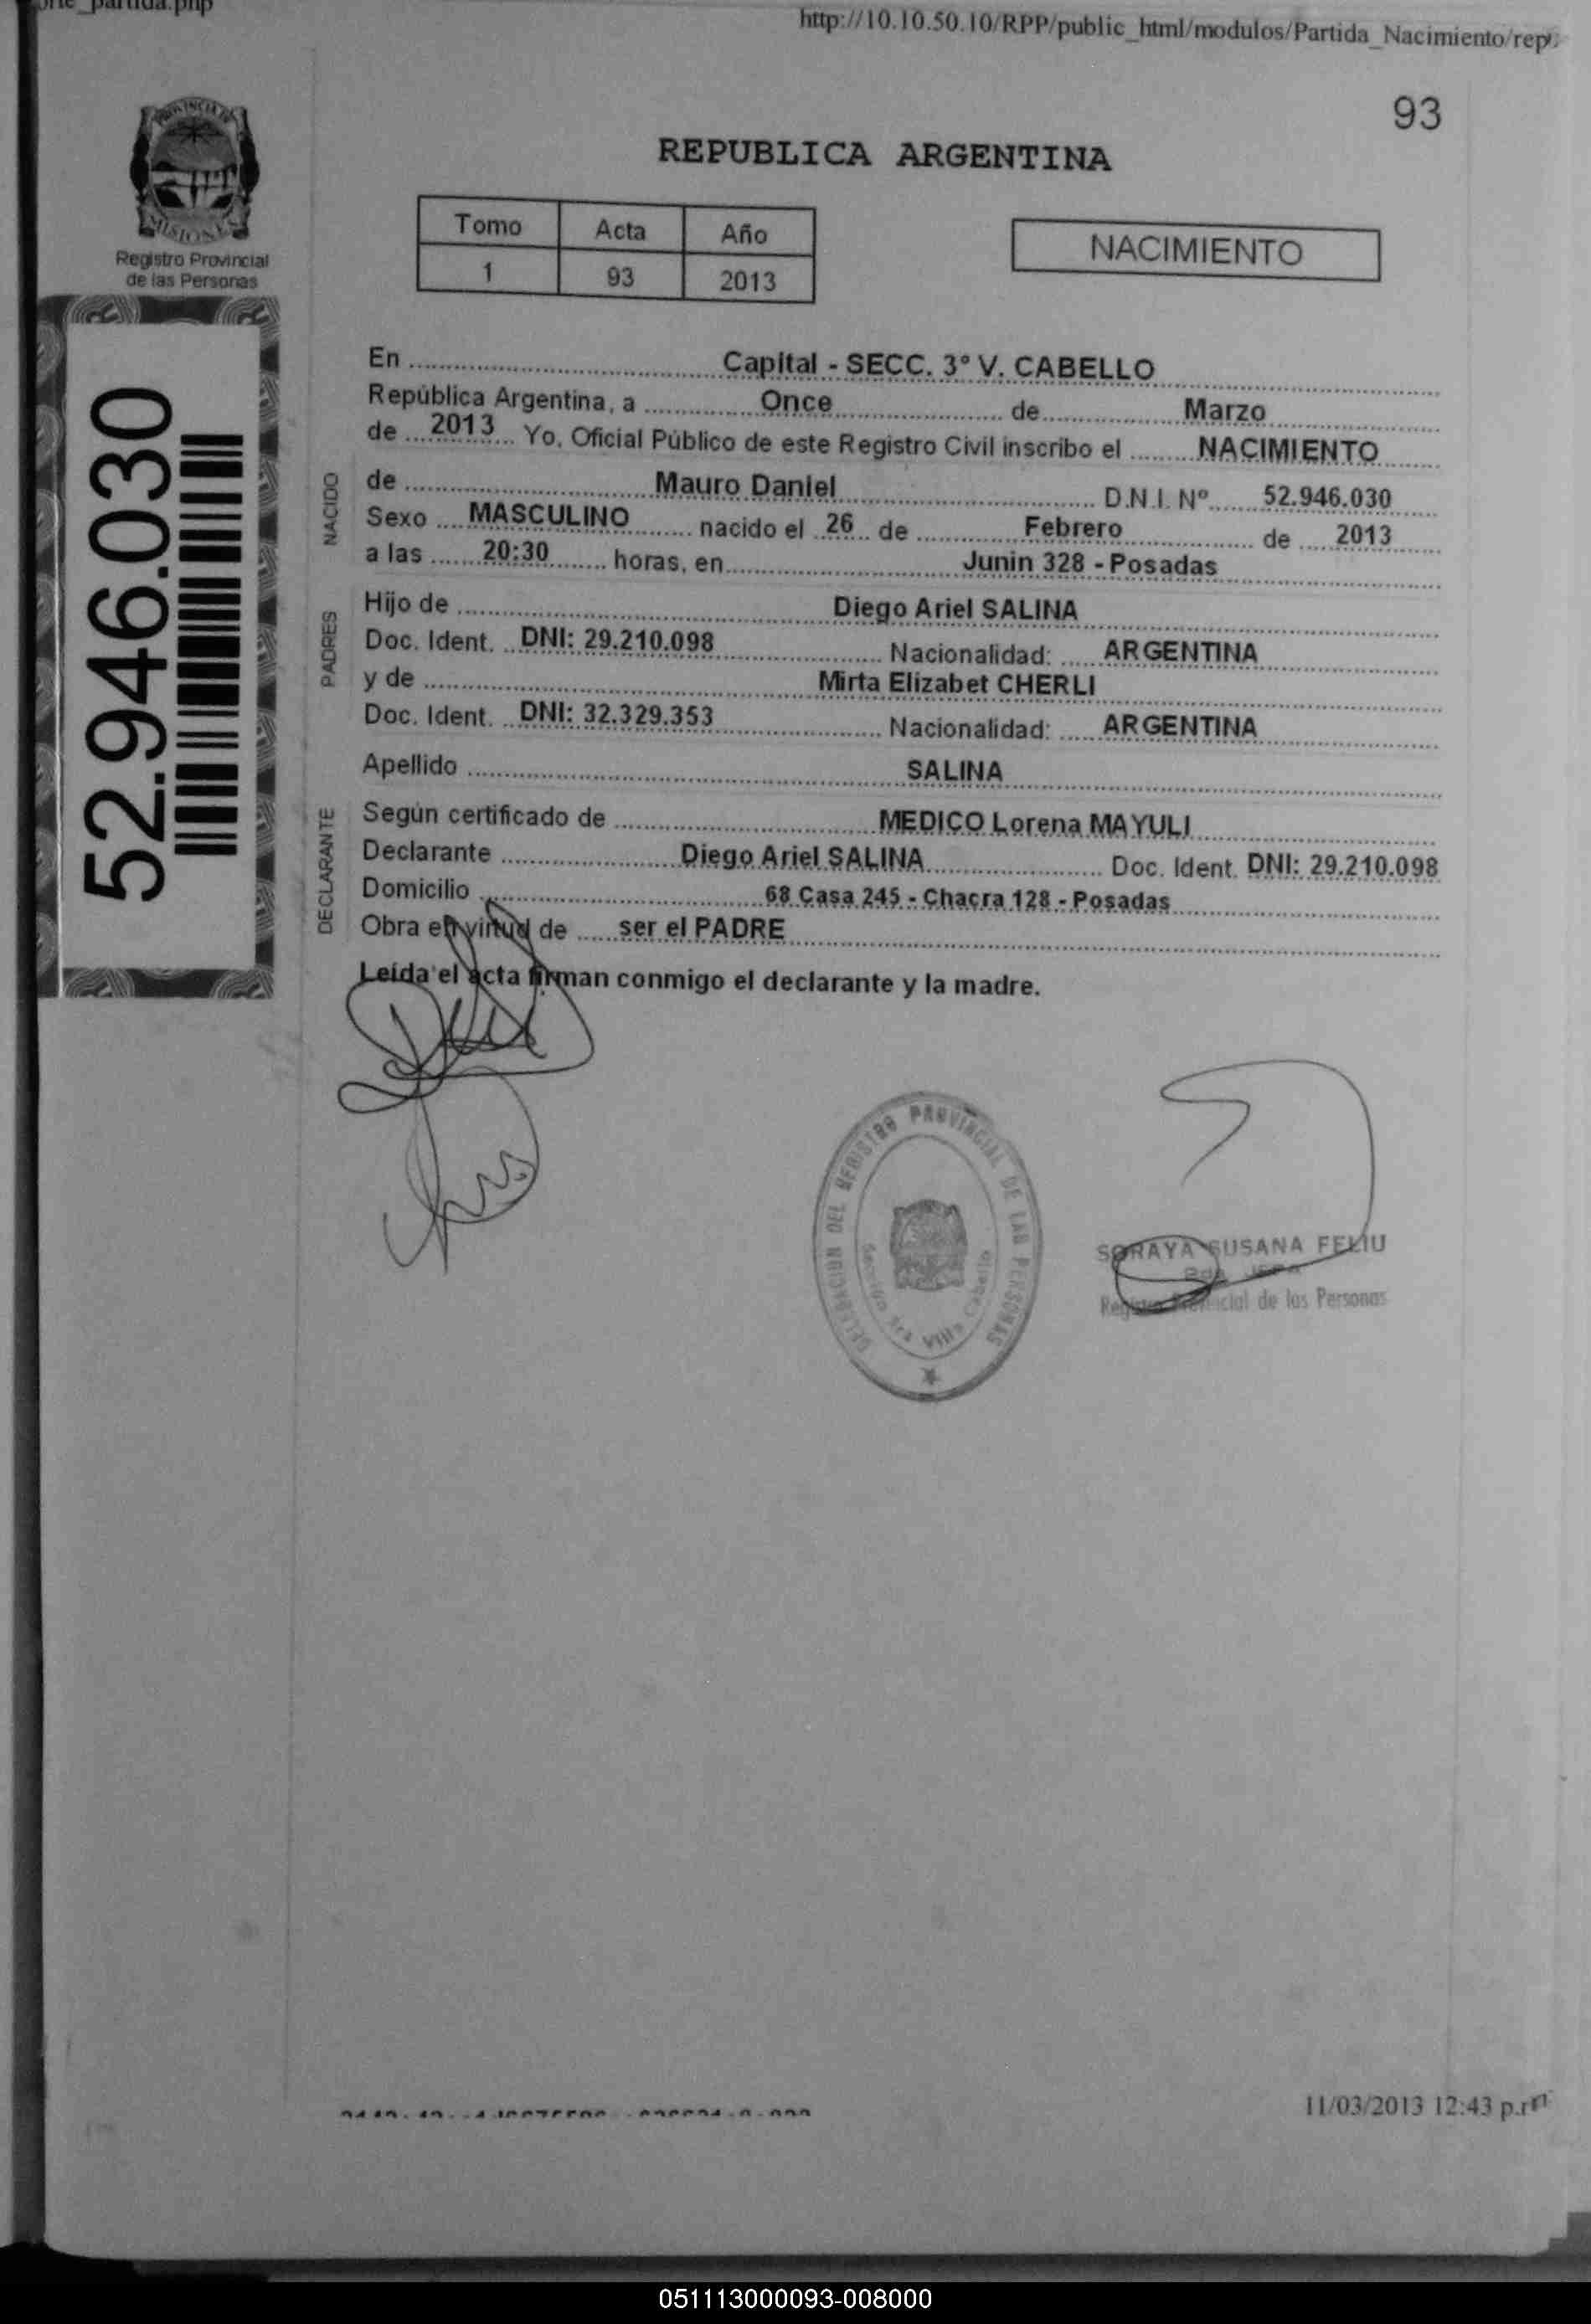 orte_partida.php
http://10.10.50.10/RPP/public_html/modulos/Partida_Nacimiento/rep
93
PROVINCIA DE
MISIONES
Registro Provincial
de las Personas
REPUBLICA ARGENTINA
Tomo Acta Año
1 93 2013
NACIMIENTO
52.946.030
En Capital - SECC. 3° V. CABELLO
República Argentina, a Once de Marzo
de 2013 Yo, Oficial Público de este Registro Civil inscribo el NACIMIENTO
NACIDO
de Mauro Daniel D.N.I. Nº 52.946.030
Sexo MASCULINO nacido el 26 de Febrero de 2013
a las 20:30 horas, en Junin 328 - Posadas
PADRES
Hijo de Diego Ariel SALINA
Doc. Ident. DNI: 29.210.098 Nacionalidad: ARGENTINA
y de Mirta Elizabet CHERLI
Doc. Ident. DNI: 32.329.353 Nacionalidad: ARGENTINA
Apellido SALINA
DECLARANTE
Según certificado de MEDICO Lorena MAYULI
Declarante Diego Ariel SALINA Doc. Ident. DNI: 29.210.098
Domicilio 68 Casa 245 - Chacra 128 - Posadas
Obra en virtud de ser el PADRE
Leída el acta firman conmigo el declarante y la madre.
DELEGACION DEL REGISTRO PROVINCIAL DE LAS PERSONAS
Sección 3ra Villa Cabello
SORAYA SUSANA FELIU
2da JEFA
Registro Provincial de las Personas
11/03/2013 12:43 p.m
051113000093-008000